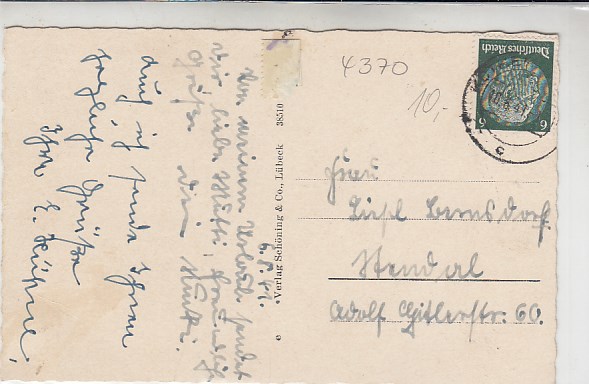 Von meinem Urlaub sendet
dir, liebe Mutti, herzliche
Grüße dein
6.8.41.
Auch ich sende Ihnen
herzliche Grüße
Ihre E. Kühne.
Verlag Schöning & Co., Lübeck 38510
4370
10,-
Deutsches Reich
6 6
Frau
Liesl Bernsdorf
Stendal
Adolf Hitlerstr. 60.